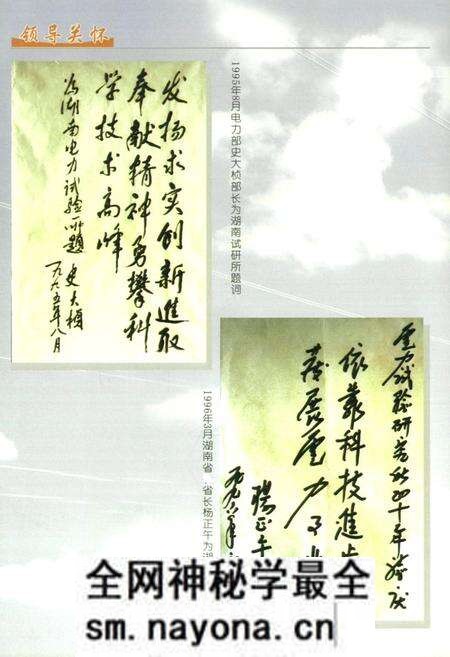 领导关怀
发扬求实创新进取
奉献精神勇攀科
学技术高峰
为湖南电力试验所题
史大桢
一九九五年八月
1995年8月电力部史大桢部长为湖南试研所题词
电力试验研究所四十年
依靠科技進步
发展電力
杨正午
一九九六年
1996年3月湖南省 省长杨正午为湖
全网神秘学最全
sm.nayona.cn